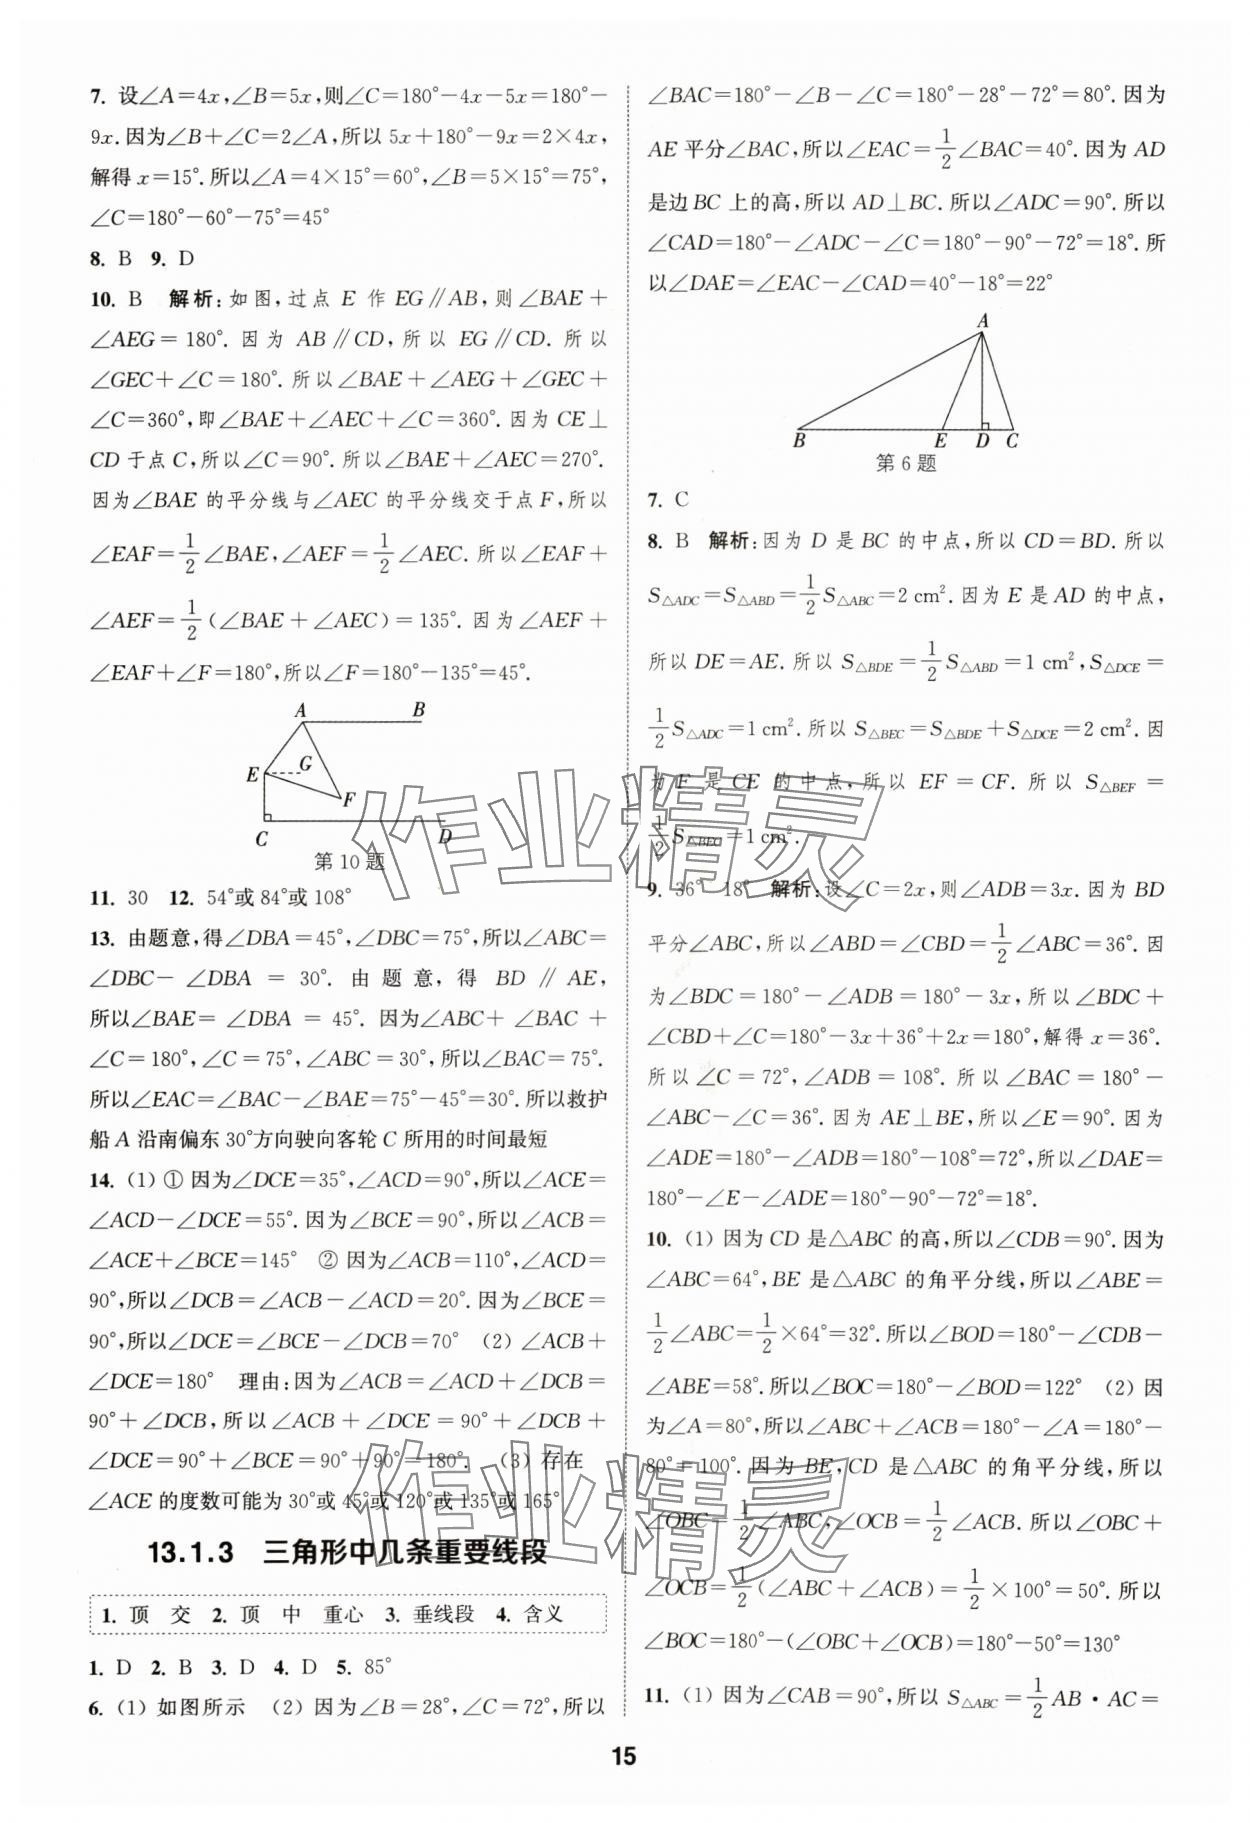 7. 设∠A=4x,∠B=5x,则∠C=180°-4x-5x=180°-
9x.因为∠B+∠C=2∠A,所以 5x+180°-9x=2×4x,
解得 x=15°.所以∠A=4×15°=60°,∠B=5×15°=75°,
∠C=180°-60°-75°=45°
8. B 9. D
10. B 解析:如图,过点 E 作 EG∥AB,则∠BAE+
∠AEG=180°.因为 AB∥CD,所以 EG∥CD.所以
∠GEC+∠C=180°.所以∠BAE+∠AEG+∠GEC+
∠C=360°,即∠BAE+∠AEC+∠C=360°.因为 CE⊥
CD 于点 C,所以∠C=90°.所以∠BAE+∠AEC=270°.
因为∠BAE 的平分线与∠AEC 的平分线交于点 F,所以
∠EAF=1/2∠BAE,∠AEF=1/2∠AEC.所以∠EAF+
∠AEF=1/2(∠BAE+∠AEC)=135°.因为∠AEF+
∠EAF+∠F=180°,所以∠F=180°-135°=45°.
A B
E G
F
C D
第 10 题
11. 30 12. 54°或 84°或 108°
13. 由题意,得∠DBA=45°,∠DBC=75°,所以∠ABC=
∠DBC-∠DBA=30°.由题意,得 BD∥AE,
所以∠BAE=∠DBA=45°.因为∠ABC+∠BAC+
∠C=180°,∠C=75°,∠ABC=30°,所以∠BAC=75°.
所以∠EAC=∠BAC-∠BAE=75°-45°=30°.所以救护
船 A 沿南偏东 30°方向驶向客轮 C 所用的时间最短
14. (1) ① 因为∠DCE=35°,∠ACD=90°,所以∠ACE=
∠ACD-∠DCE=55°.因为∠BCE=90°,所以∠ACB=
∠ACE+∠BCE=145° ② 因为∠ACB=110°,∠ACD=
90°,所以∠DCB=∠ACB-∠ACD=20°.因为∠BCE=
90°,所以∠DCE=∠BCE-∠DCB=70° (2) ∠ACB+
∠DCE=180° 理由:因为∠ACB=∠ACD+∠DCB=
90°+∠DCB,所以∠ACB+∠DCE=90°+∠DCB+
∠DCE=90°+∠BCE=90°+90°=180° (3) 存在
∠ACE 的度数可能为 30°或 45°或 120°或 135°或 165°
13.1.3 三角形中几条重要线段
1. 顶 交 2. 顶 中 重心 3. 垂线段 4. 含义
1. D 2. B 3. D 4. D 5. 85°
6. (1) 如图所示 (2) 因为∠B=28°,∠C=72°,所以
∠BAC=180°-∠B-∠C=180°-28°-72°=80°.因为
AE 平分∠BAC,所以∠EAC=1/2∠BAC=40°.因为 AD
是边 BC 上的高,所以 AD⊥BC.所以∠ADC=90°.所以
∠CAD=180°-∠ADC-∠C=180°-90°-72°=18°.所
以∠DAE=∠EAC-∠CAD=40°-18°=22°
A
B E D C
第 6 题
7. C
8. B 解析:因为 D 是 BC 的中点,所以 CD=BD.所以
S△ADC=S△ABD=1/2S△ABC=2 cm².因为 E 是 AD 的中点,
所以 DE=AE.所以 S△BDE=1/2S△ABD=1 cm²,S△DCE=
1/2S△ADC=1 cm².所以 S△BEC=S△BDE+S△DCE=2 cm².因
为 F 是 CE 的中点,所以 EF=CF.所以 S△BEF=
1/2S△BEC=1 cm².
9. 36° 18° 解析:设∠C=2x,则∠ADB=3x.因为 BD
平分∠ABC,所以∠ABD=∠CBD=1/2∠ABC=36°.因
为∠BDC=180°-∠ADB=180°-3x,所以∠BDC+
∠CBD+∠C=180°-3x+36°+2x=180°,解得 x=36°.
所以∠C=72°,∠ADB=108°.所以∠BAC=180°-
∠ABC-∠C=36°.因为 AE⊥BE,所以∠E=90°.因为
∠ADE=180°-∠ADB=180°-108°=72°,所以∠DAE=
180°-∠E-∠ADE=180°-90°-72°=18°.
10. (1) 因为 CD 是△ABC 的高,所以∠CDB=90°.因为
∠ABC=64°,BE 是△ABC 的角平分线,所以∠ABE=
1/2∠ABC=1/2×64°=32°.所以∠BOD=180°-∠CDB-
∠ABE=58°.所以∠BOC=180°-∠BOD=122° (2) 因
为∠A=80°,所以∠ABC+∠ACB=180°-∠A=180°-
80°=100°.因为 BE,CD 是△ABC 的角平分线,所以
∠OBC=1/2∠ABC,∠OCB=1/2∠ACB.所以∠OBC+
∠OCB=1/2(∠ABC+∠ACB)=1/2×100°=50°.所以
∠BOC=180°-(∠OBC+∠OCB)=180°-50°=130°
11. (1) 因为∠CAB=90°,所以 S△ABC=1/2AB·AC=
15
作业精灵
作业精灵